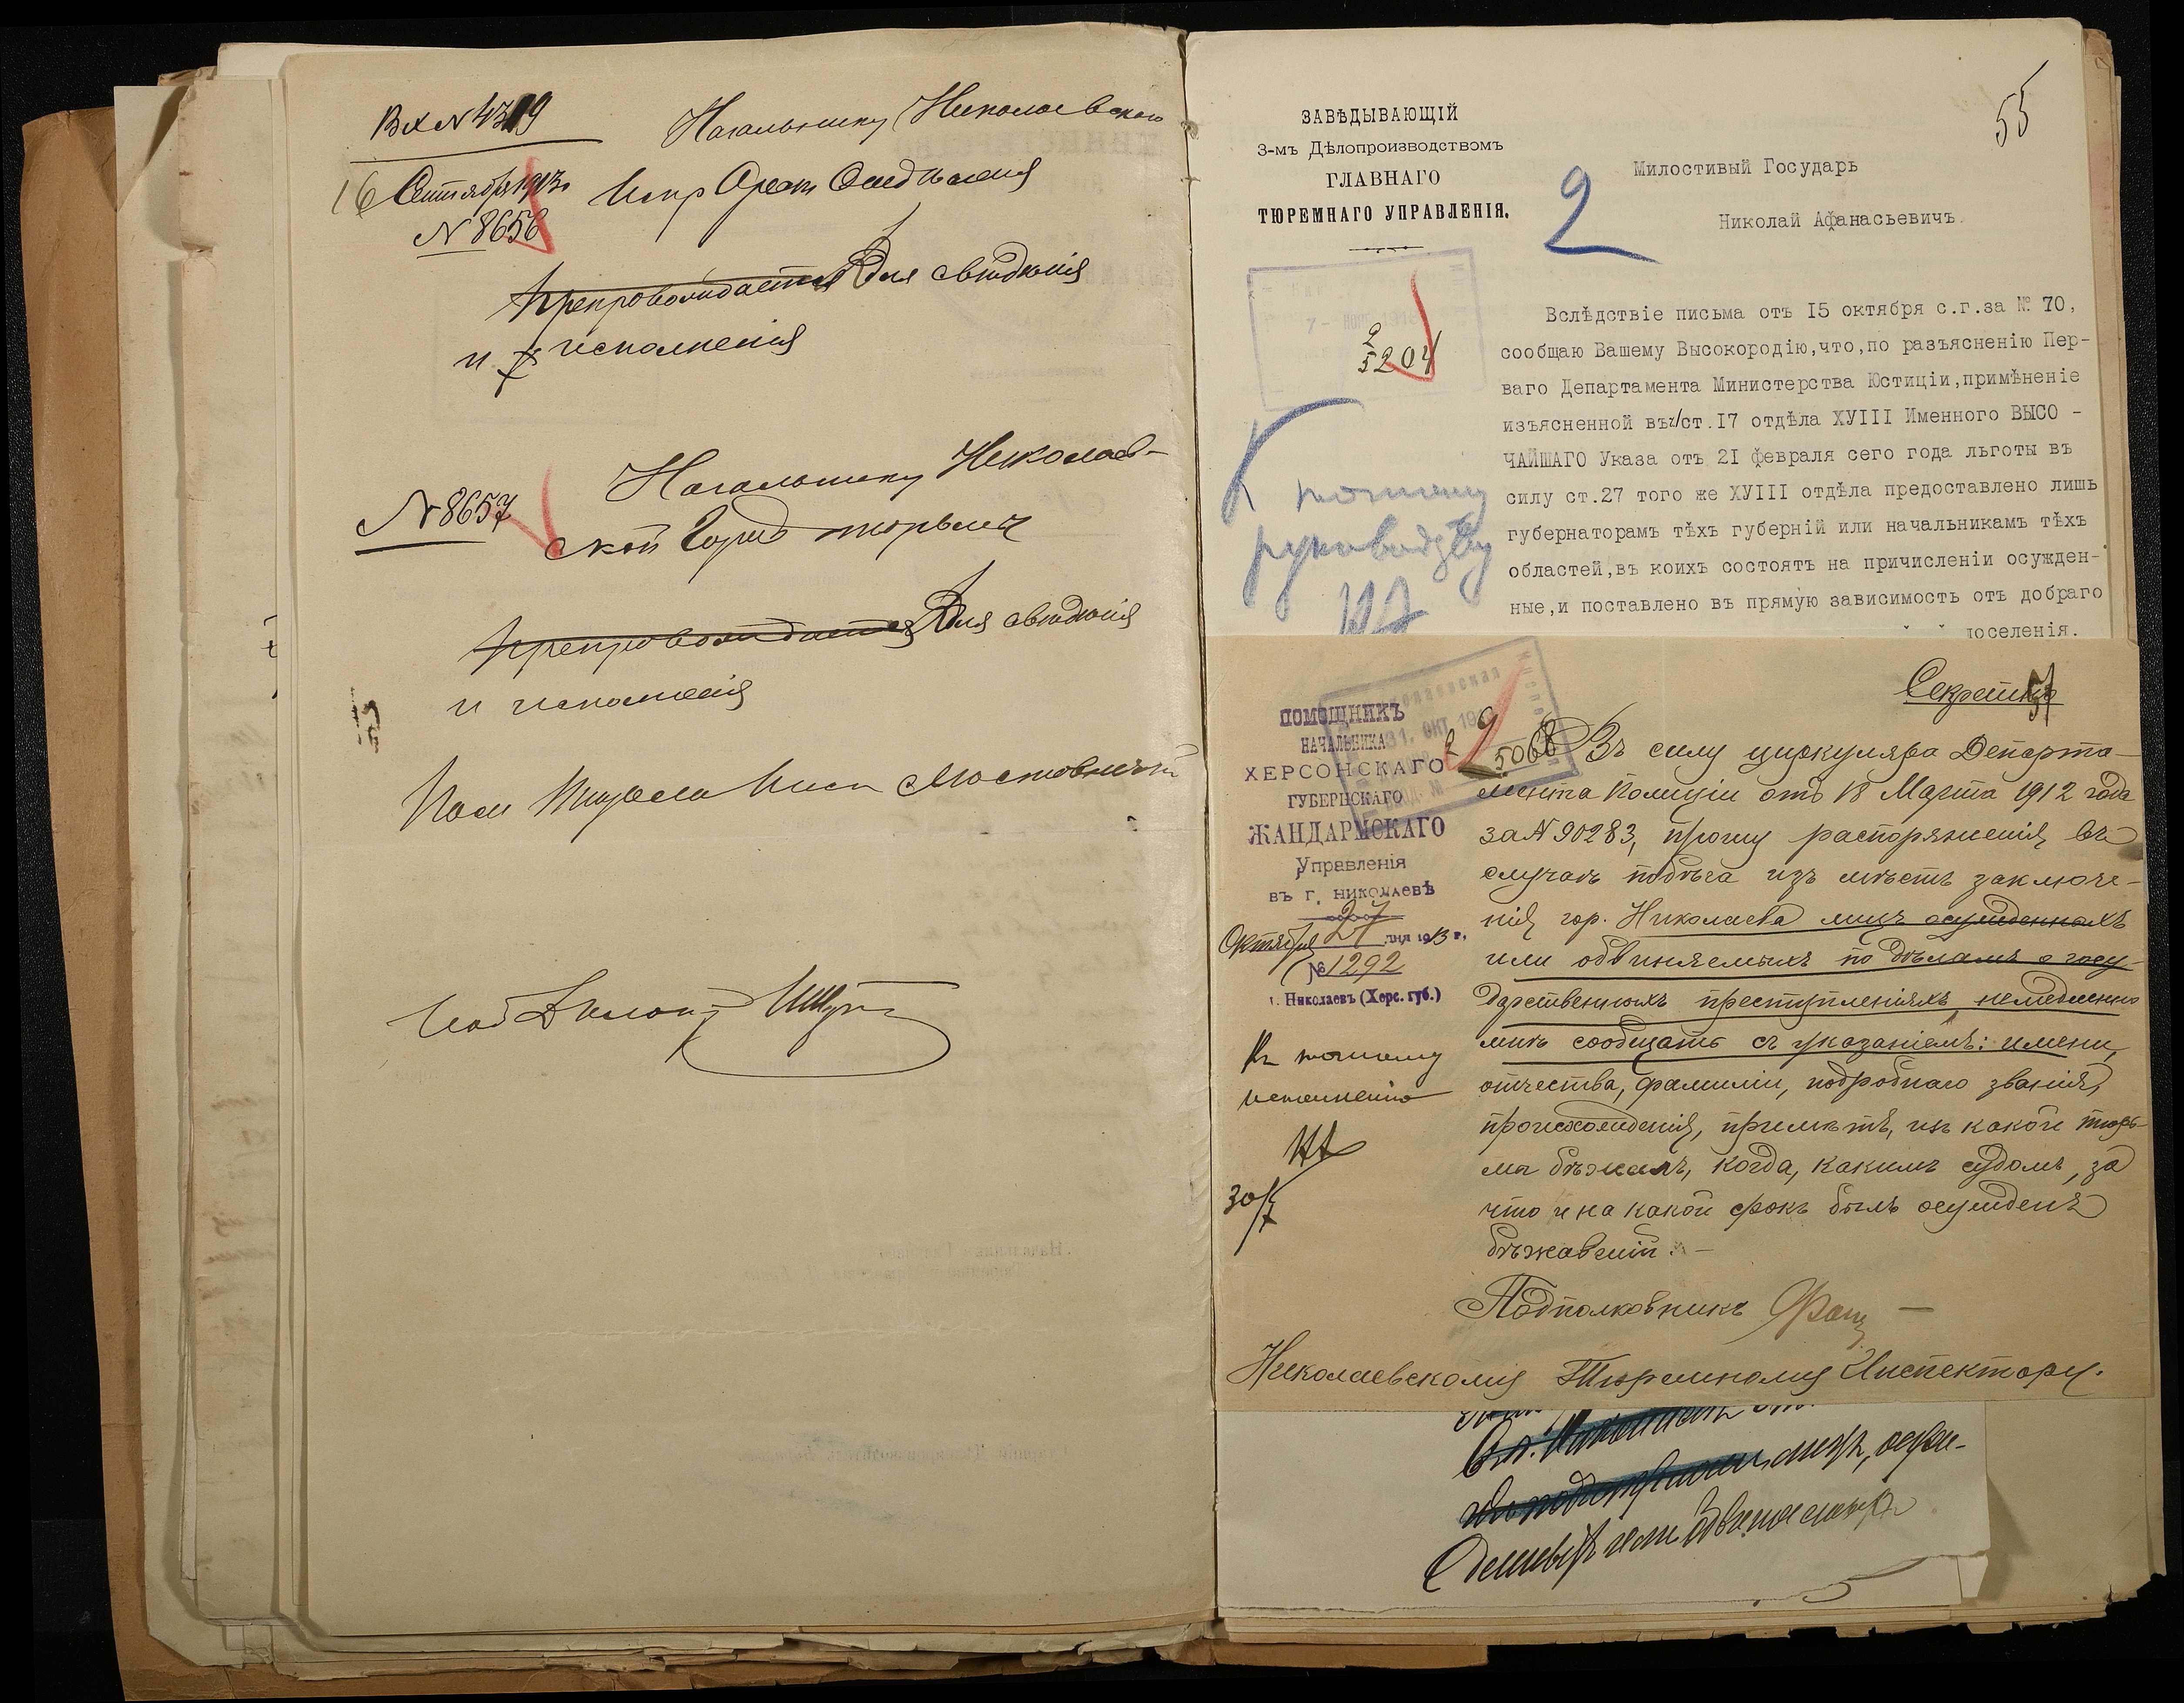 Вх N 4319
16 Сентября 1913 г.
N 8656
Начальнику Николаевскаго
Испр Арест Отдѣленія
Препровождается Для свѣдѣнія
и исполненія
N 8657
Начальнику Николаев-
ской Город тюрьмы
Препровождается Для свѣдѣнія
и исполненія
Тюрем Инсп
55
ЗАВѢДЫВАЮЩІЙ
3-мъ Дѣлопроизводствомъ
ГЛАВНАГО
ТЮРЕМНАГО УПРАВЛЕНІЯ.
2
Милостивый Государь
Николай Афанасьевичъ.
2
5204
Вслѣдствіе письма отъ 15 октября с.г.за № 70,
сообщаю Вашему Высокородію,что,по разъясненію Пер-
ваго Департамента Министерства Юстиціи,примѣненіе
изъясненной въ ст.17 отдѣла ХУІІІ Именного ВЫСО -
ЧАЙШАГО Указа отъ 21 февраля сего года льготы въ
силу ст.27 того же ХУІІІ отдѣла предоставлено лишь
губернаторамъ тѣхъ губерній или начальникамъ тѣхъ
областей,въ коихъ состоятъ на причисленіи осужден-
ные,и поставлено въ прямую зависимость отъ добраго
поселенія.
К точному
руководству
Секретно
57
ПОМОЩНИКЪ
НАЧАЛЬНИКА
ХЕРСОНСКАГО
ГУБЕРНСКАГО
ЖАНДАРМСКАГО
Управленія
въ г. НИКОЛАЕВѢ
Октября 27 дня 1913 г.
№ 1292
г. Николаевъ (Херс. губ.)
31. ОКТ. 191
2
5068
Въ силу циркуляра Департа-
мента Полиціи отъ 18 Марта 1912 года
за N 90283, прошу распоряженія, въ
случаѣ побѣга изъ мѣстъ заключе-
нія гор. Николаева лицъ осужденныхъ
или обвиняемыхъ по дѣламъ о госу-
дарственныхъ преступленіяхъ, немедленно
мнѣ сообщать съ указаніемъ: имени,
отчества, фамиліи, подробнаго званія,
происхожденія, примѣтъ, изъ какой тюрь-
мы бѣжалъ, когда, какимъ судомъ, за
что и на какой срокъ былъ осужденъ
бѣжавшій. –
Подполковникъ
Николаевскому Тюремному Инспектору.
Къ точному
исполненію
30/X
лицъ, осуж-
денныхъ или обвиняемыхъ